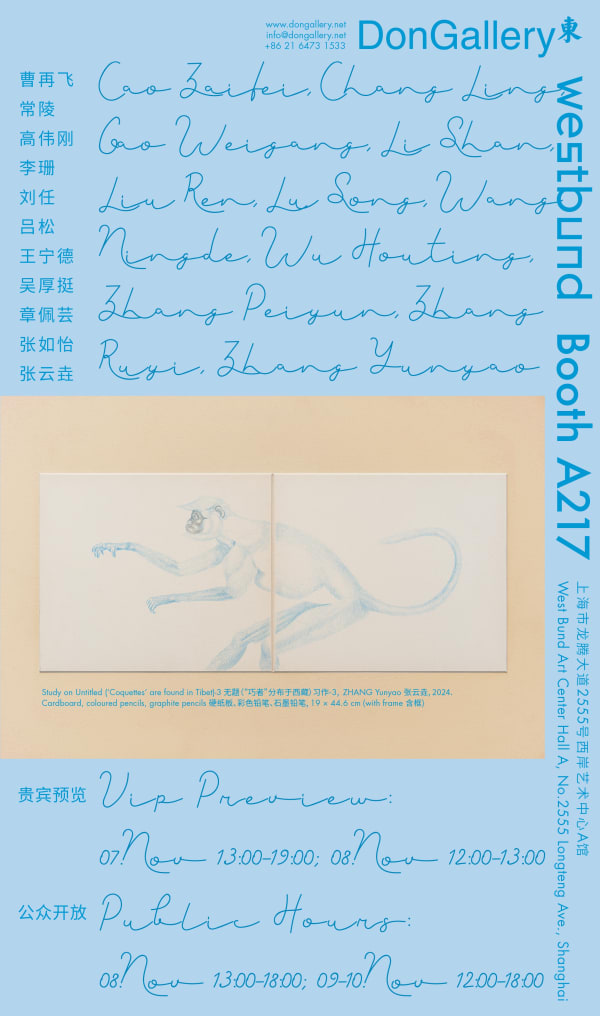 www.dongallery.net
info@dongallery.net
+86 21 6473 1533
DonGallery東
曹再飞
常陵
高伟刚
李珊
刘任
吕松
王宁德
吴厚挺
章佩芸
张如怡
张云垚
Cao Zaifei, Chang Ling,
Gao Weigang, Li Shan,
Liu Ren, Lu Song, Wang
Ningde, Wu Houting,
Zhang Peiyun, Zhang
Ruyi, Zhang Yunyao
westbund Booth A217
上海市龙腾大道2555号西岸艺术中心A馆
West Bund Art Center Hall A, No.2555 Longteng Ave., Shanghai
Study on Untitled ('Coquettes' are found in Tibet)-3 无题（“巧者”分布于西藏）习作-3, ZHANG Yunyao 张云垚, 2024.
Cardboard, coloured pencils, graphite pencils 硬纸板、彩色铅笔、石墨铅笔, 19 × 44.6 cm (with frame 含框)
贵宾预览 Vip Preview:
07.Nov 13:00-19:00; 08.Nov 12:00-13:00
公众开放 Public Hours:
08.Nov 13:00-18:00; 09-10.Nov 12:00-18:00